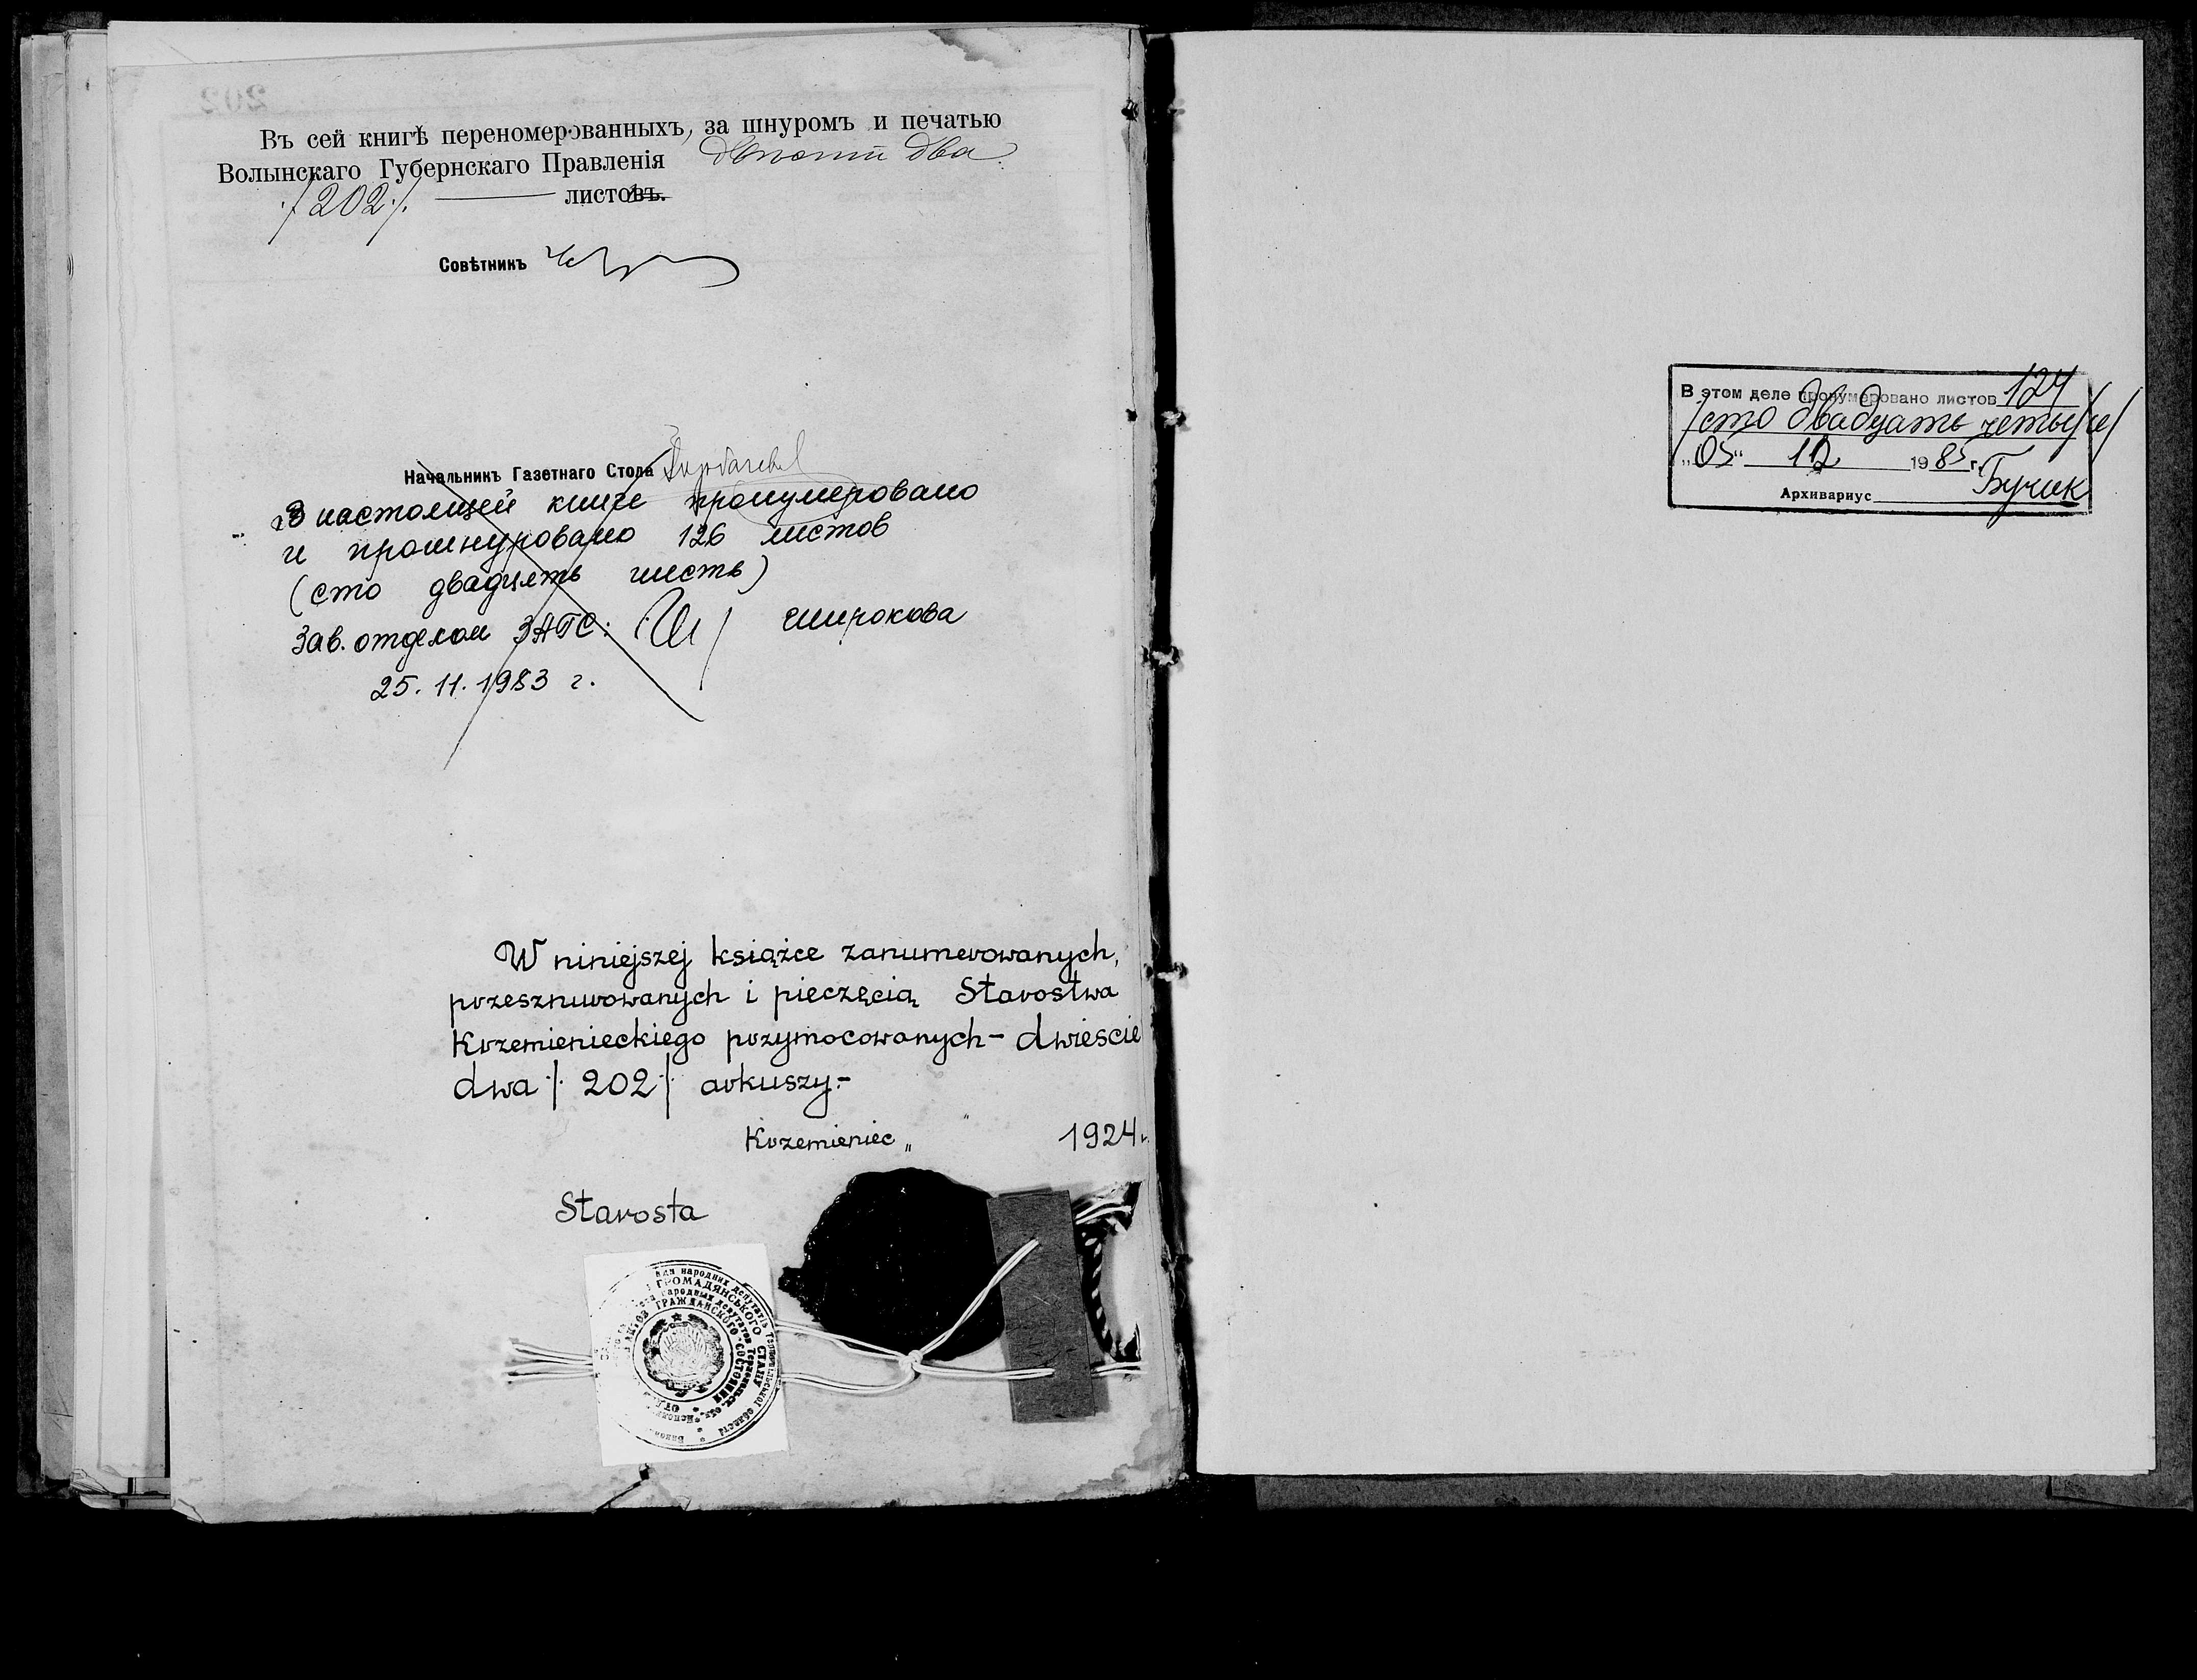 Въ сей книгѣ переномерованныхъ, за шнуромъ и печатью
Волынскаго Губернскаго Правленія двѣсти два
/202/. листовъ.
Совѣтникъ
Начальникъ Газетнаго Стола
В настоящей книге пронумеровано
и прошнуровано 126 листов
(сто двадцять шесть)
Зав. отделом ЗАГС: Широкова
25. 11. 1983 г.
W niniejszej książce zanumerowanych,
przesznurowanych i pieczęcią Starostwa
Krzemienieckiego przymocowanych - dwieście
dwa /. 202 /. arkuszy.-
Krzemieniec „ " 1924 r.
Starosta
народних депутатів Тернопільської області
ГРОМАДЯНСЬКОГО СТАНУ
народных депутатов Тернопольск. обл.
АКТОВ ГРАЖДАНСКОГО СОСТОЯНИЯ
В этом деле пронумеровано листов 124
/сто двадцать четыре/
„05" 12 1985 г.
Архивариус Бучик